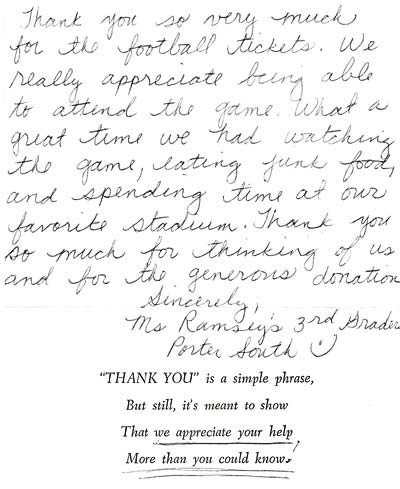 Thank you so very much
for the football tickets. We
really appreciate being able
to attend the game. What a
great time we had watching
the game, eating junk food,
and spending time at our
favorite stadium. Thank you
so much for thinking of us
and for the generous donation
Sincerely,
Ms Ramsey's 3rd Graders
Porter South
"THANK YOU" is a simple phrase,
But still, it's meant to show
That we appreciate your help,
More than you could know.